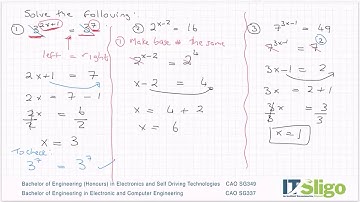 Solve the following:
① 3^(2x+1) = 3^7
left = right
2x+1 = 7
2x = 7 - 1
2x/2 = 6/2
x = 3
To check
3^7 = 3^7 ✓
② 2^(x-2) = 16
① Make base # the same
2^(x-2) = 2^4
x - 2 = 4
x = 4 + 2
x = 6
③ 7^(3x-1) = 49
7^(3x-1) = 7^2
3x - 1 = 2
3x = 2+1
3x/3 = 3/3
x = 1
Bachelor of Engineering (Honours) in Electronics and Self Driving Technologies CAO SG349
Bachelor of Engineering in Electronic and Computer Engineering CAO SG337
IT Sligo